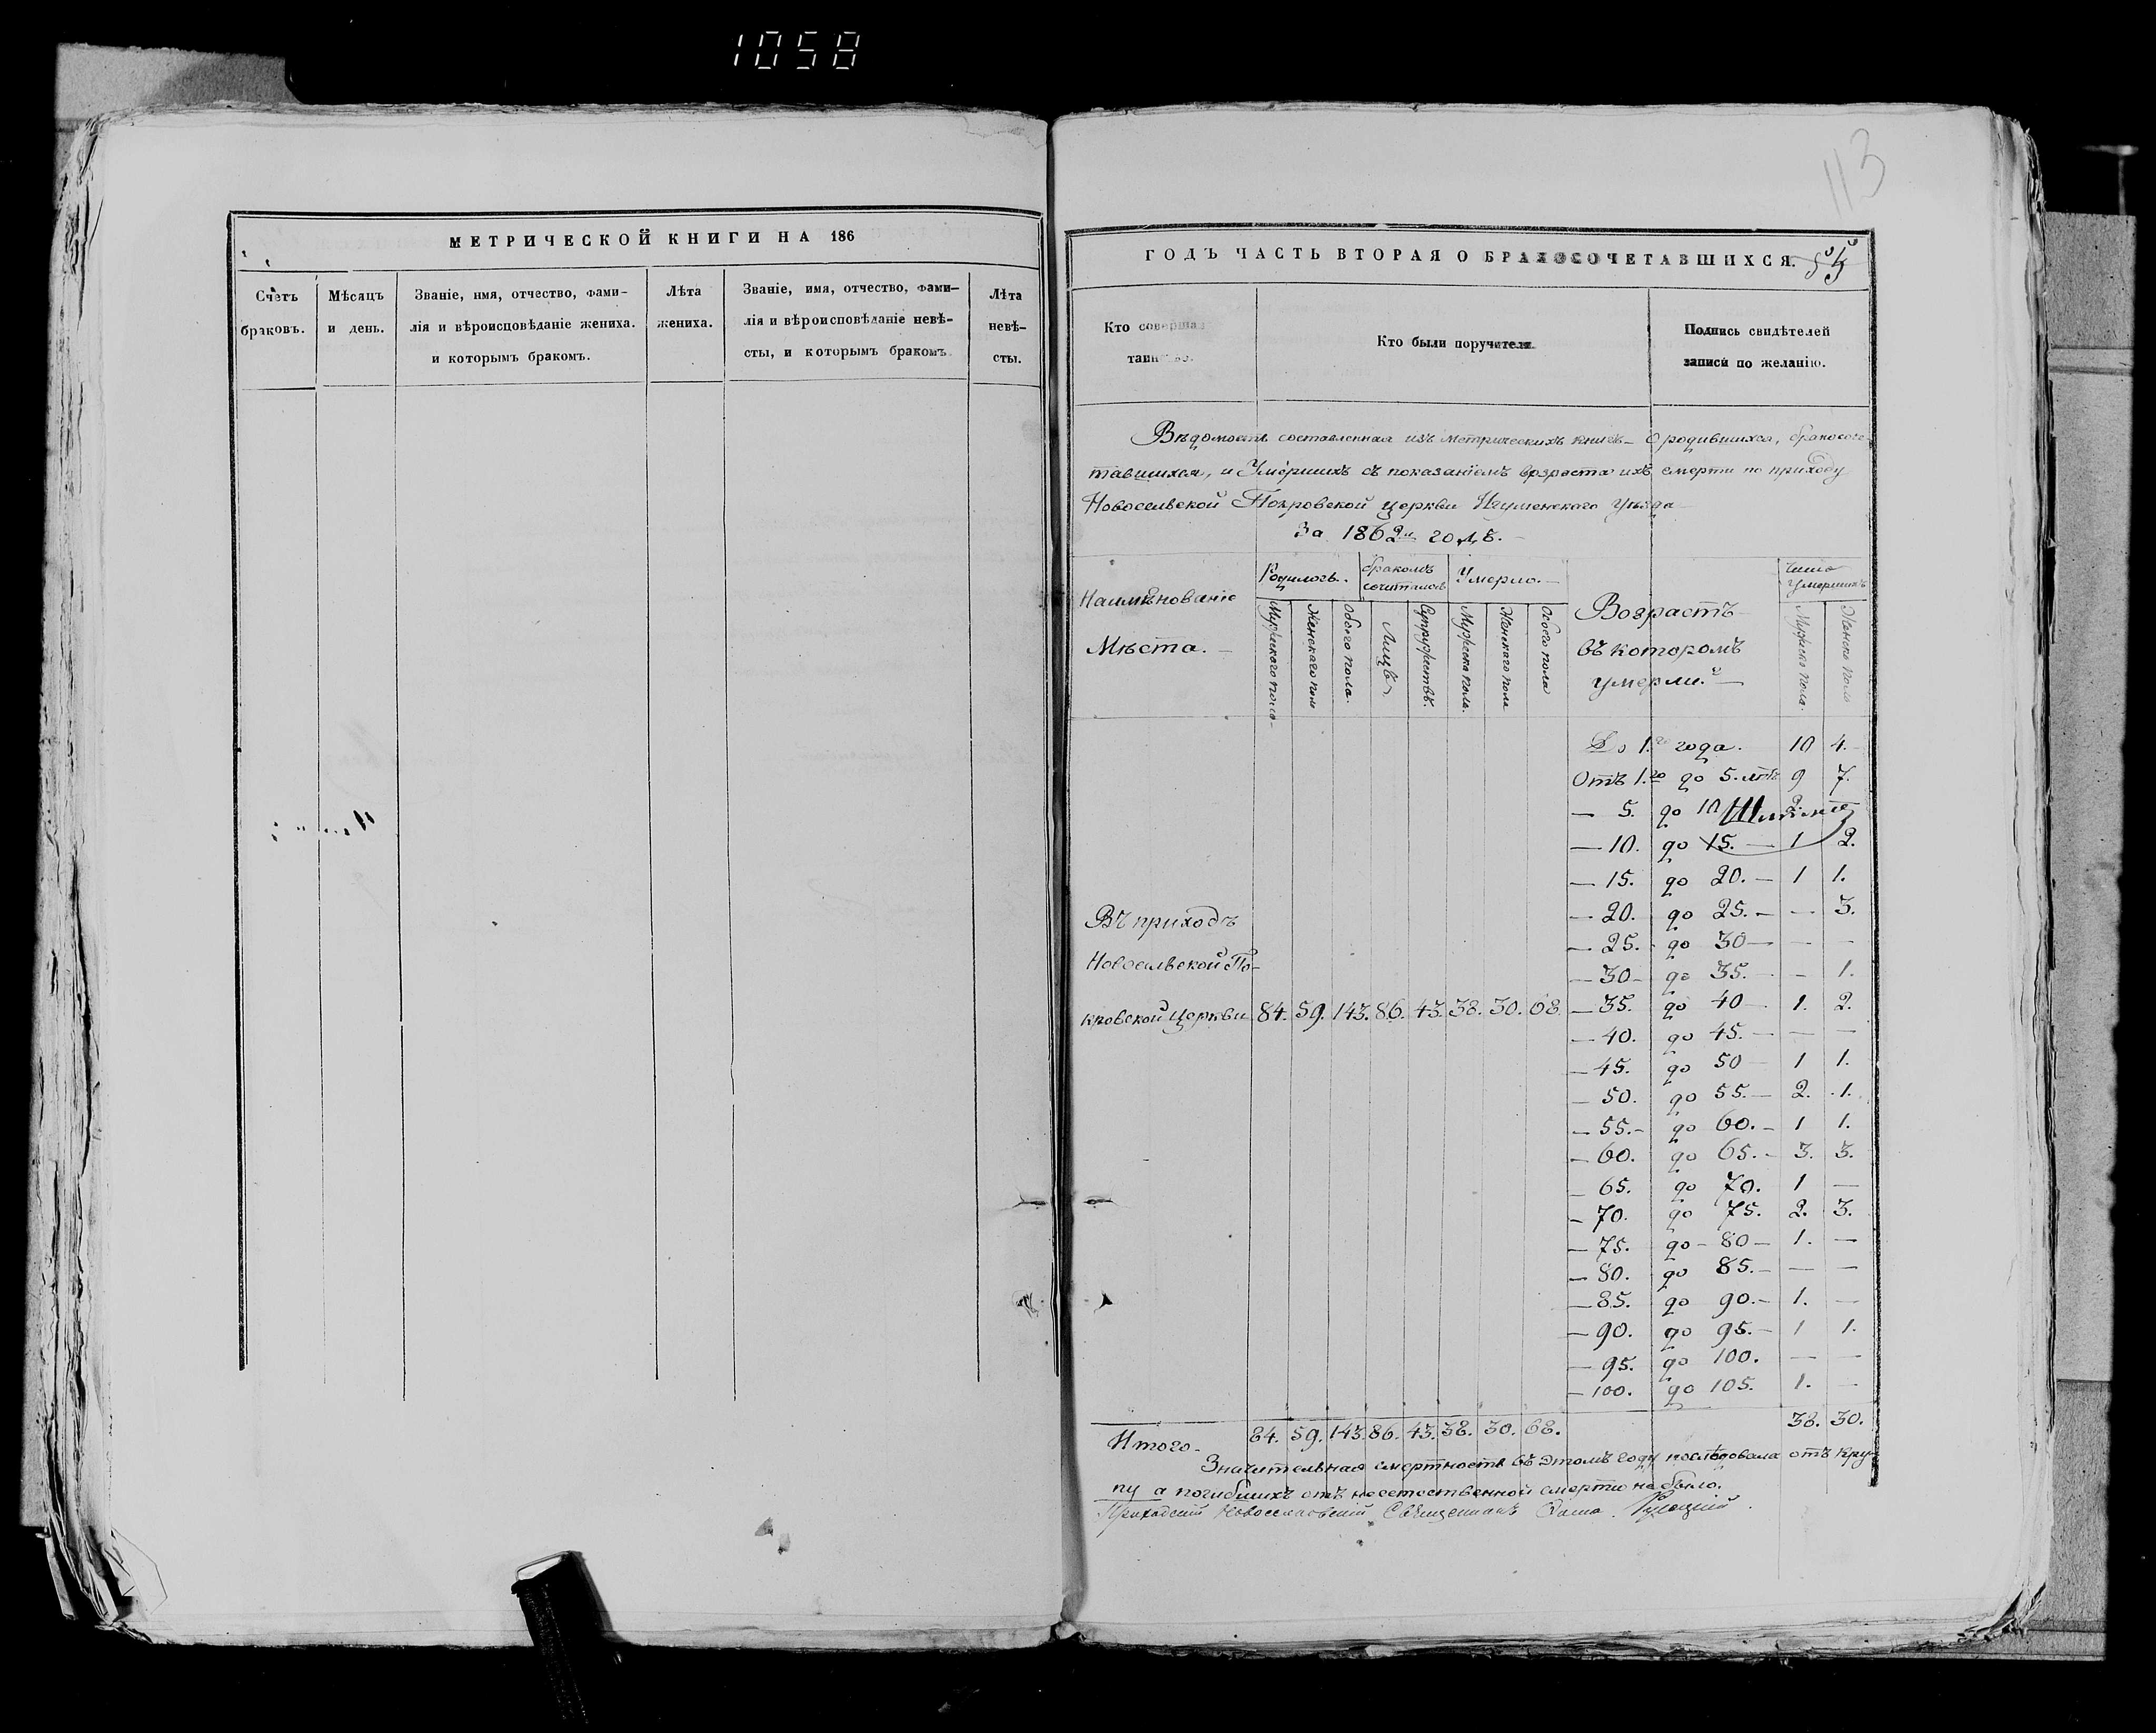 1058
113
МЕТРИЧЕСКОЙ КНИГИ НА 186
Счетъ браковъ.
Мѣсяцъ и день.
Званіе, имя, отчество, фами-
лія и вѣроисповѣданіе жениха.
и которымъ бракомъ.
Лѣта жениха.
Званіе, имя, отчество, фами-
лія и вѣроисповѣданіе невѣ-
сты, и которымъ бракомъ.
Лѣта невѣ-
сты.
ГОДЪ ЧАСТЬ ВТОРАЯ О БРАКОСОЧЕТАВШИХСЯ.
Кто совершал
таинство.
Кто были поручители
Подпись свидѣтелей
записи по желанію.
Вѣдомость составленная изъ метрическихъ книгъ – о родившихся, бракосоче-
тавшихся, и Умершихъ съ показаніемъ возраста ихъ смерти по приходу
Новосельской Покровской церкви Игуменского Уѣзда
За 1862й годъ. –
Наименованіе
Мѣста. –
Родилось.
Мужескаго пола
Женскаго пола
Обоего пола.
бракомъ сочиталось
Лицъ
Супружествъ.
Умерло. –
Мужеска пола.
Женскаго пола
Обоего пола
Возрастъ
въ которомъ
умерли. –
Число умершихъ
Мужеска пола.
Женска пола
До 1.го года. 10 4.
Отъ 1.го до 5. лѣтъ 9 7.
— 5. до 10 2.
— 10. до 15. — 1 2.
— 15. до 20. — 1 1.
— 20. до 25. — — 3.
— 25. до 30 — — —
— 30 до 35. — – 1.
— 35. до 40 — 1. 2.
— 40. до 45. — — —
— 45. до 50 1 1.
— 50. до 55. — 2. 1.
— 55. – до 60. – 1 1.
— 60. до 65. – 3. 3.
— 65. до 70. 1 —
— 70. до 75. 2. 3.
— 75. до – 80 – 1. —
— 80. до 85. – — —
— 85. до 90. – 1. —
— 90. до 95. – 1 1.
— 95. до 100. — —
— 100. до 105. 1. —
Въ приходѣ
Новосельской По-
кровской церкви 84. 59. 143. 86. 43. 38. 30. 68
Итого. 84. 59. 143. 86. 43. 38. 30. 68. 38. 30.
Значительная смертность въ этомъ году послѣдовала отъ кру-
пу а погибшихъ отъ неестественной смерти не было.
Приходскій Новосельскій Священникъ Фома